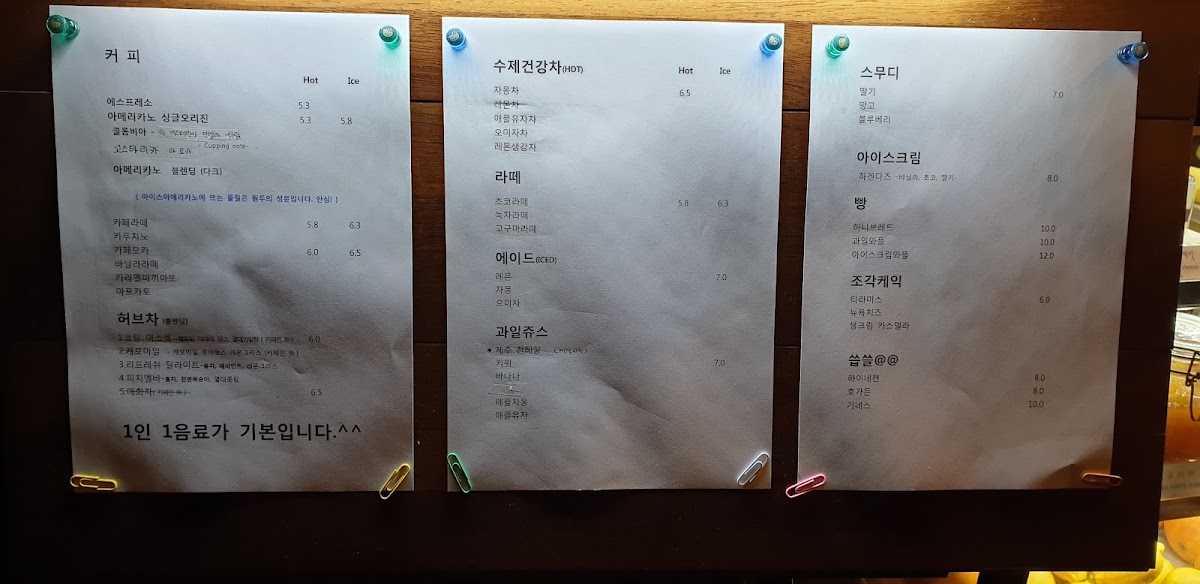 커 피
Hot Ice
에스프레소 5.3
아메리카노 싱글오리진 5.3 5.8
콜롬비아 -
코스타리카 라 로카 - Cupping note-
아메리카노 블렌딩 (다크)
( 아이스아메리카노에 뜨는 물질은 원두의 성분입니다. 안심! )
카페라떼 5.8 6.3
카푸치노
카페모카 6.0 6.5
바닐라라떼
카라멜마끼아또
아포카토
허브차 (블렌딩)
1.로얄 6.0
2.캐모마일 - 캐모마일 루이보스 레몬그라스 (카페인 無)
3.리프레쉬 딜라이트-홍차, 페퍼민트, 레몬그라스
4.피치멜바-홍차, 천연복숭아, 열대풍잎
5.매화차( 카페인 無 ) 6.5
1인 1음료가 기본입니다.^^
수제건강차(HOT) Hot Ice
자몽차 6.5
레몬차
애플유자차
오미자차
레몬생강차
라떼
초코라떼 5.8 6.3
녹차라떼
고구마라떼
에이드(ICED)
레몬 7.0
자몽
오미자
과일쥬스
* 제주 한라봉
키위 7.0
바나나
애플자몽
애플유자
스무디
딸기 7.0
망고
블루베리
아이스크림
하겐다즈 -바닐라, 초코, 딸기- 8.0
빵
허니브레드 10.0
과일와플 10.0
아이스크림와플 12.0
조각케익
티라미스 6.0
뉴욕치즈
생크림 카스텔라
씁쓸@@
하이네켄 8.0
호가든 8.0
기네스 10.0